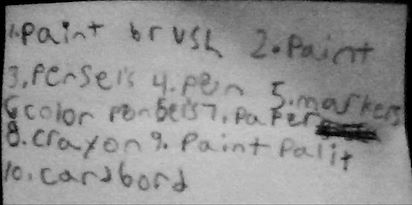 1. paint brush 2. paint
3. Pensels 4. pen 5. markers
6 color penbels 7. paper
8. crayon 9. paint palit
10. cardbord